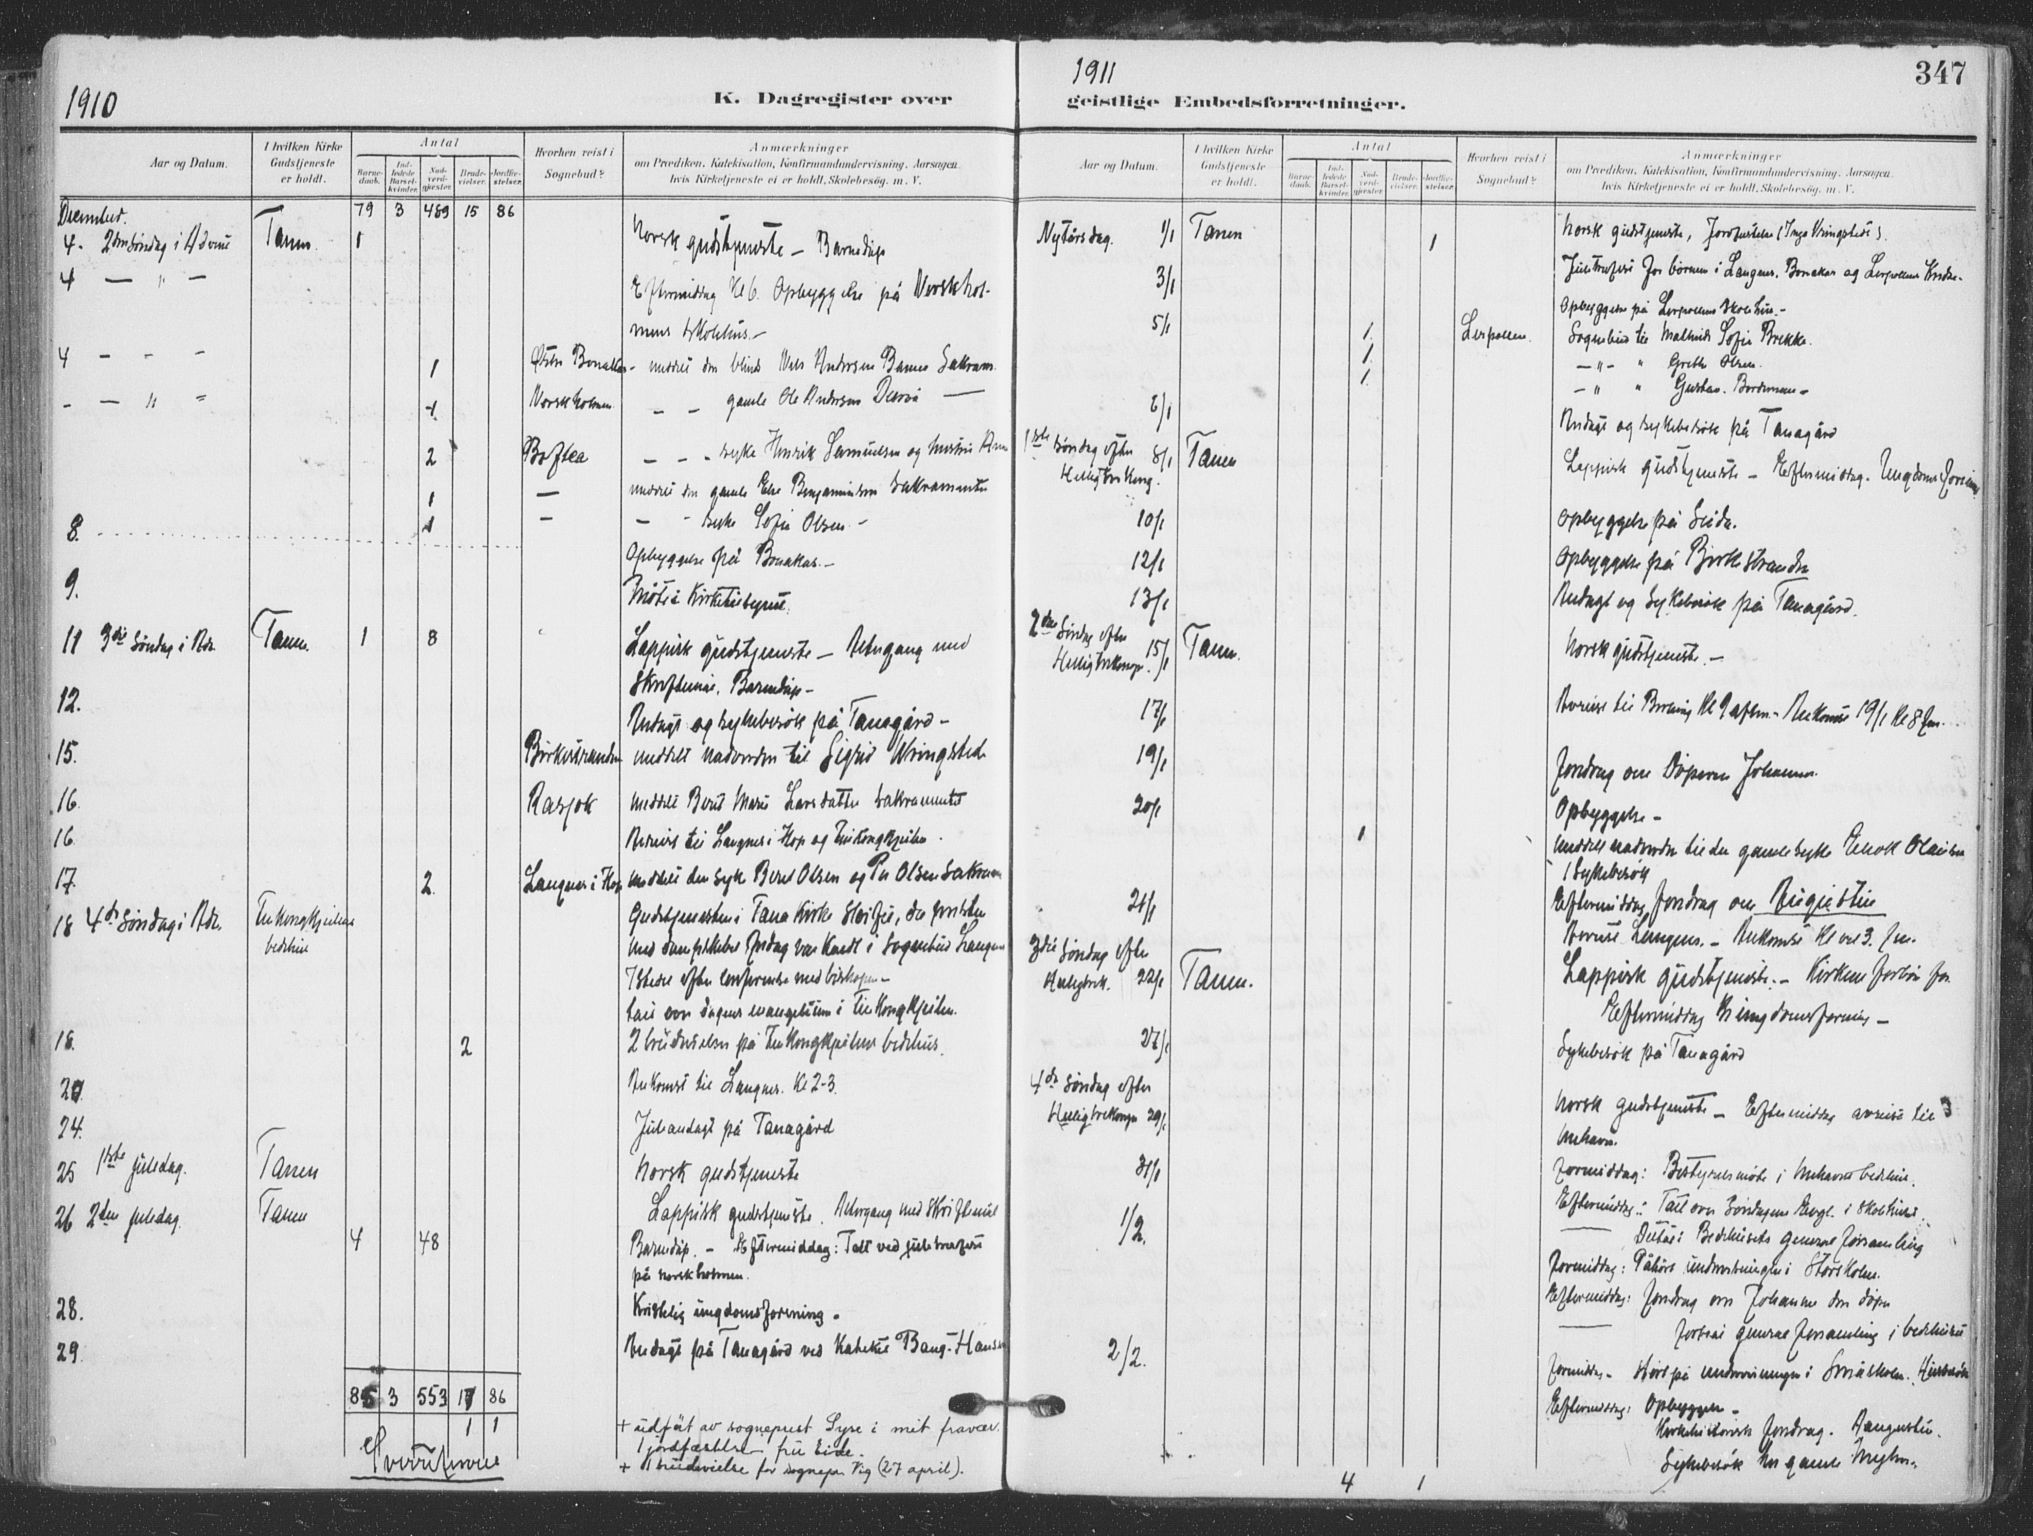 1910
K. Dagregister over
Aar og Datum.
I hvilken Kirke Gudstjeneste er holdt.
Antal
Barne-daab.
Ind-ledede Barsel-kvinder.
Nad-verd-gjester.
Brude-vielser.
Jordfæ-stelser.
Hvorhen reist i Sognebud?
Anmærkninger
om Prædiken, Katekisation, Konfirmandundervisning, Aarsagen,
hvis Kirketjeneste ei er holdt, Skolebesøg, m. V.
79 3 489 15 86
December.
4. 2den Søndag i Advent Tanen 1 Norsk gudstjeneste – Barnedåp
4 — " — Eftermiddag Kl 6. Opbyggelse på Norskhol-
mens Skolehus –
4 – – – 1 Østre Bonakas – meddelt den blinde Nils Andersen Banne Sakram.
– – " – 1 Norskholmen – – gamle Ole Andersen —
2 Boftsa – – – syke Henrik Samuelsen og hustru
1 — meddelt den gamle Else Benjaminsen sakramentet
1 – – – syke Sofie Olsen –
8. Opbyggelse på Bonakas –
9. Møte i Kirketilsynet.
11 3die Søndag i Adv. Tanen. 1 8 Lappisk gudstjeneste – Altergang med
Skriftemål. Barnedåp –
12. Andagt og sykebesøk på Tanagård –
15. Birkestranden meddelt nadverden til Sigrid Vringsted
16. Rasjok meddelt Berit Marie Larsdatter sakramentet
16 Avreise til Langnes i Hop og
17 2. Langnes i Hop meddelt den syke Beret Olsen og Per Olsen Sakram
18 4de Søndag i Adv. bedehus Gudstjenesten i Tana Kirke sløifet, da presten
med dampskibet fredag var Kaldt i Sognebud Langnes
istedet efter conference med biskopen –
Tale over dagens evangelium i
18. 2 2 brudevielser på bedehus.
20. Ankomst til Langnes. Kl 2-3.
24. Juleandagt på Tanagård
25 1ste juledag. Tanen Norsk gudstjeneste
26 2den juledag. Tanen Lappisk gudstjeneste. Altergang med Skriftemål
4 48 Barnedåp. – Eftermiddag: Talt ved juletræfest
på Norskholmen.
28. Kristelig ungdomsforening.
29. Andagt på Tanagård ved Kateket Bang-Hansen
85 3 553 17 86
1 1
+ utført av sogneprest Lyse i mit fravær.
1 jordfæstelse fru Eide.
+ 1 brudevielse for sognepr. Vig (27 april).
1911
347
geistlige Embedsforretninger.
Aar og Datum.
I hvilken Kirke Gudstjeneste er holdt.
Antal
Barne-daab.
Ind-ledede Barsel-kvinder.
Nad-verd-gjester.
Brude-vielser.
Jordfæ-stelser.
Hvorhen reist i Sognebud?
Anmærkninger
om Prædiken, Katekisation, Konfirmandundervisning, Aarsagen,
hvis Kirketjeneste ei er holdt, Skolebesøg, m. V.
Nytårsdag. 1/1 Tanen 1 Norsk gudstjeneste, Jordfæstelse (Inga Vringsted).
3/1 Juletræfest for børnene i Langnes, Bonakas og Leirpollens Kredse –
Opbyggelse på Leirpollens Skolehus. –
5/1 1 Leirpollen. Sognebud til Mathilde Sofie Brekke.
1 – " – " Grethe Olsen.
1 – " " Gustav.
6/1 Andagt og sykebesøk på Tanagård
1ste søndag efter Helligtrekong. 8/1 Tanen Lappisk gudstjeneste – Eftermiddag. Ungdomsforening
10/1 Opbyggelse på Seida.
12/1 Opbyggelse på Birkestranden
13/1 Andagt og Sykebesøk på Tanagård.
2den Søndag efter Helligtrekonger. 15/1 Tanen. Norsk gudstjeneste. –
17/1 Avreise til Kl 9 aften – Ankomst 19/1 Kl 8 fm.
19/1 Foredrag om Døperen Johannes.
20/1 Opbyggelse –
1 Meddelt nadverden til den gamle syke Enok Olaisen
1 Sykebesøk
21/1 Eftermiddag foredrag om Augustin
Avreise Langnes. – Ankomst Kl ved 3. fm.
3die Søndag efter Helligtrek. 22/1 Tanen. Lappisk gudstjeneste. – Kirkens forbøn for
Eftermiddag Ungdomsforening –
27/1 Sykebesøk på Tanagård
4de Søndag efter Helligtrekonger 29/1 Norsk gudstjeneste – Eftermiddag avreise til
Mehavn.
31/1 Formiddag: Bestyrelsesmøte i Mehavns bedehus.
Eftermiddag: Talt over Søndagens Evgl. i Skolehuset.
1/2. — Deltat i Bedehusets generalforsamling
Formiddag: Påhørt undervisningen i Storskolen.
Eftermiddag: Foredrag om Johannes den døper
— Fortsat generalforsamling i bedehuset
2/2. Formiddag – Hørt på undervisningen i Småskolen. Husbesøk
Eftermiddag: Opbyggelse –
Kirkehistorisk foredrag. Augustin.
Sykebesøk hos gamle
4 1